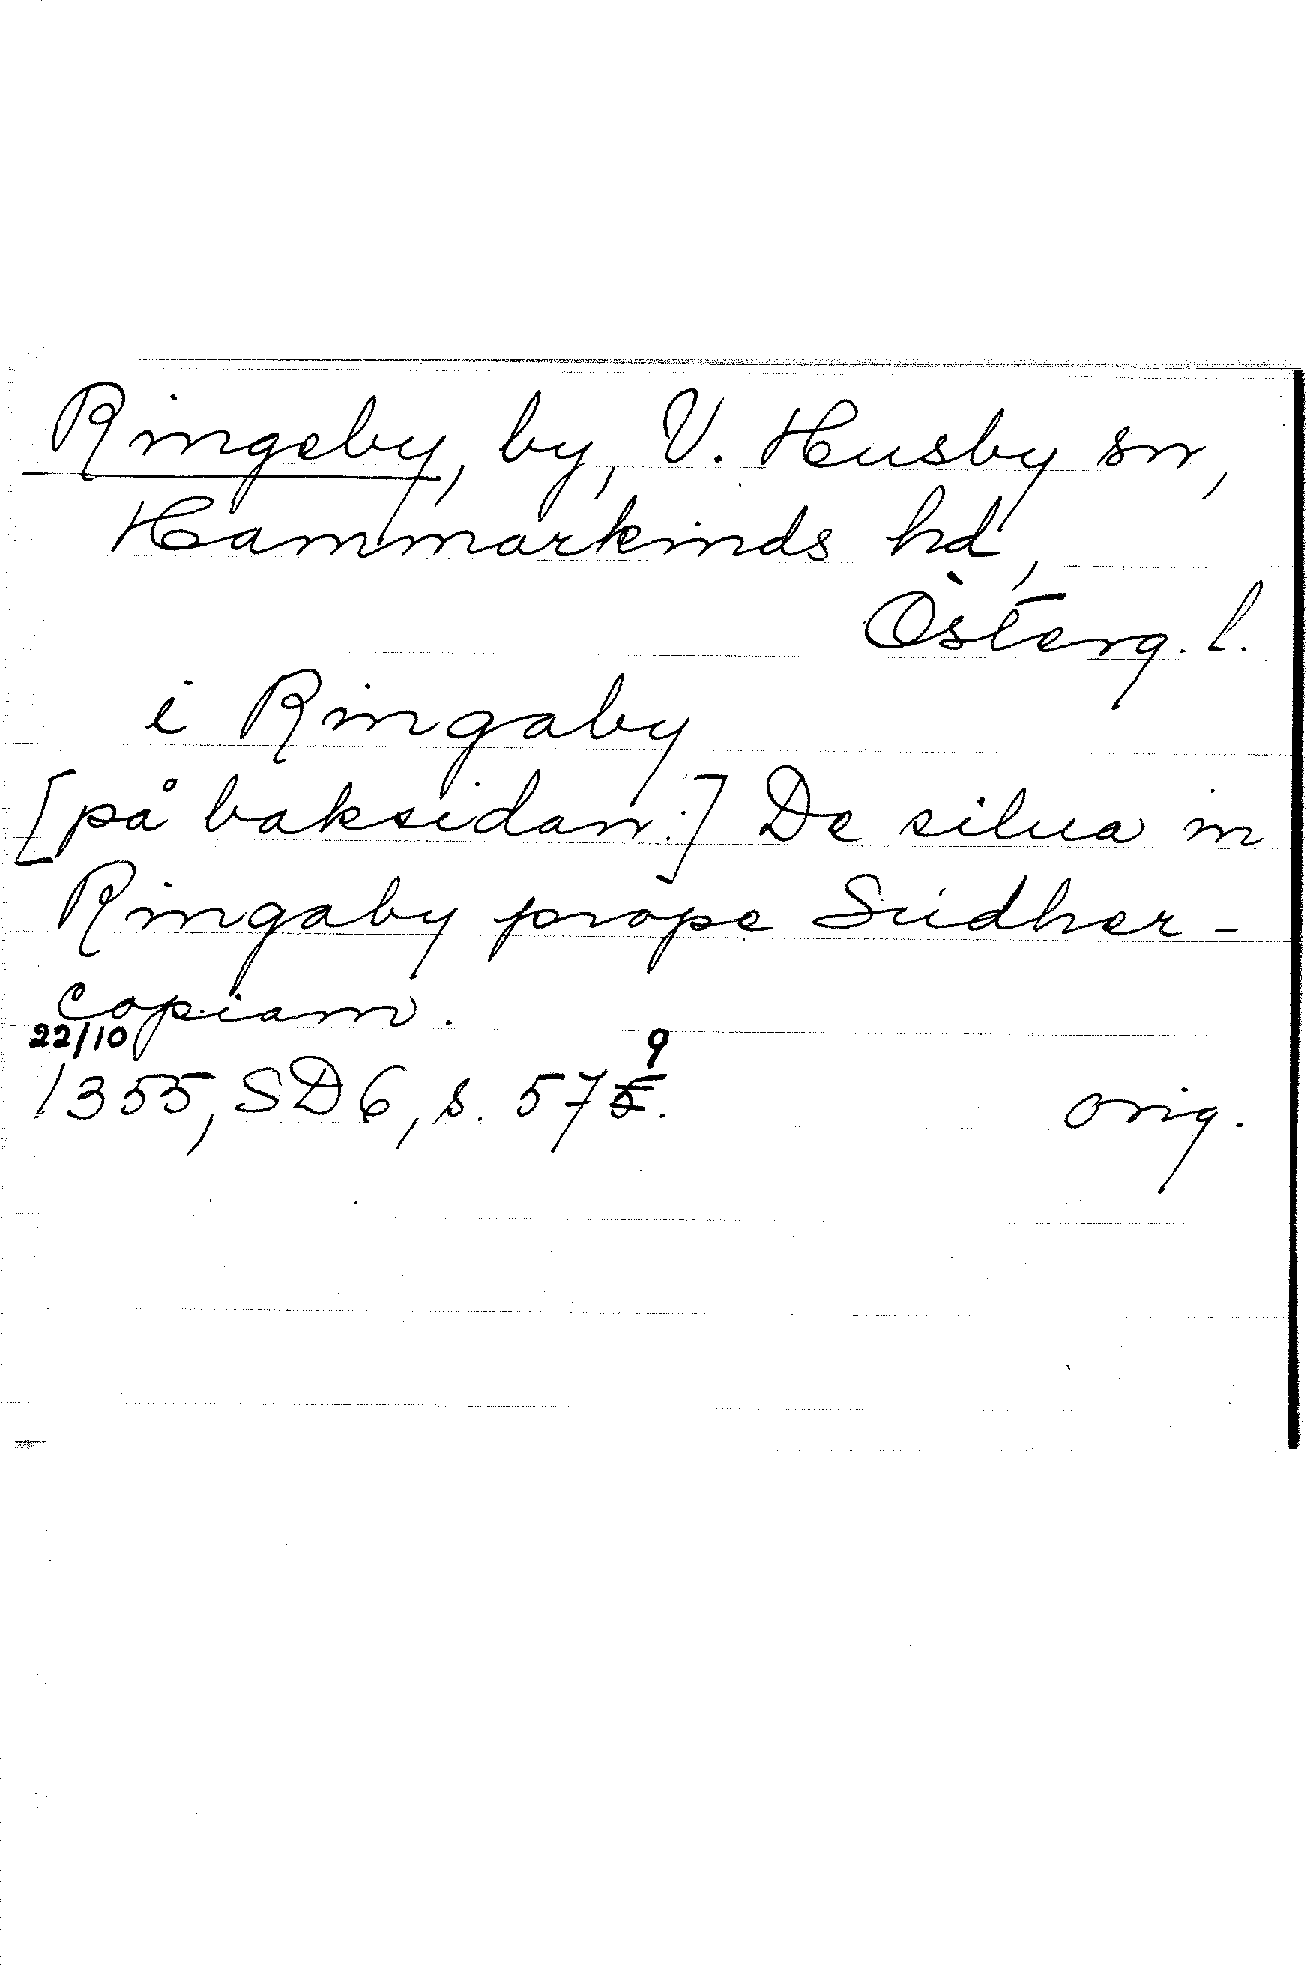 Ringeby, by, V. Husby sn,
Hammarkinds hd,
Österg. l.
i Ringaby
[på baksidan:] De silua in
Ringaby prope Sudher-
copiam.
22/10
9
1355, SD6, s. 575. orig.